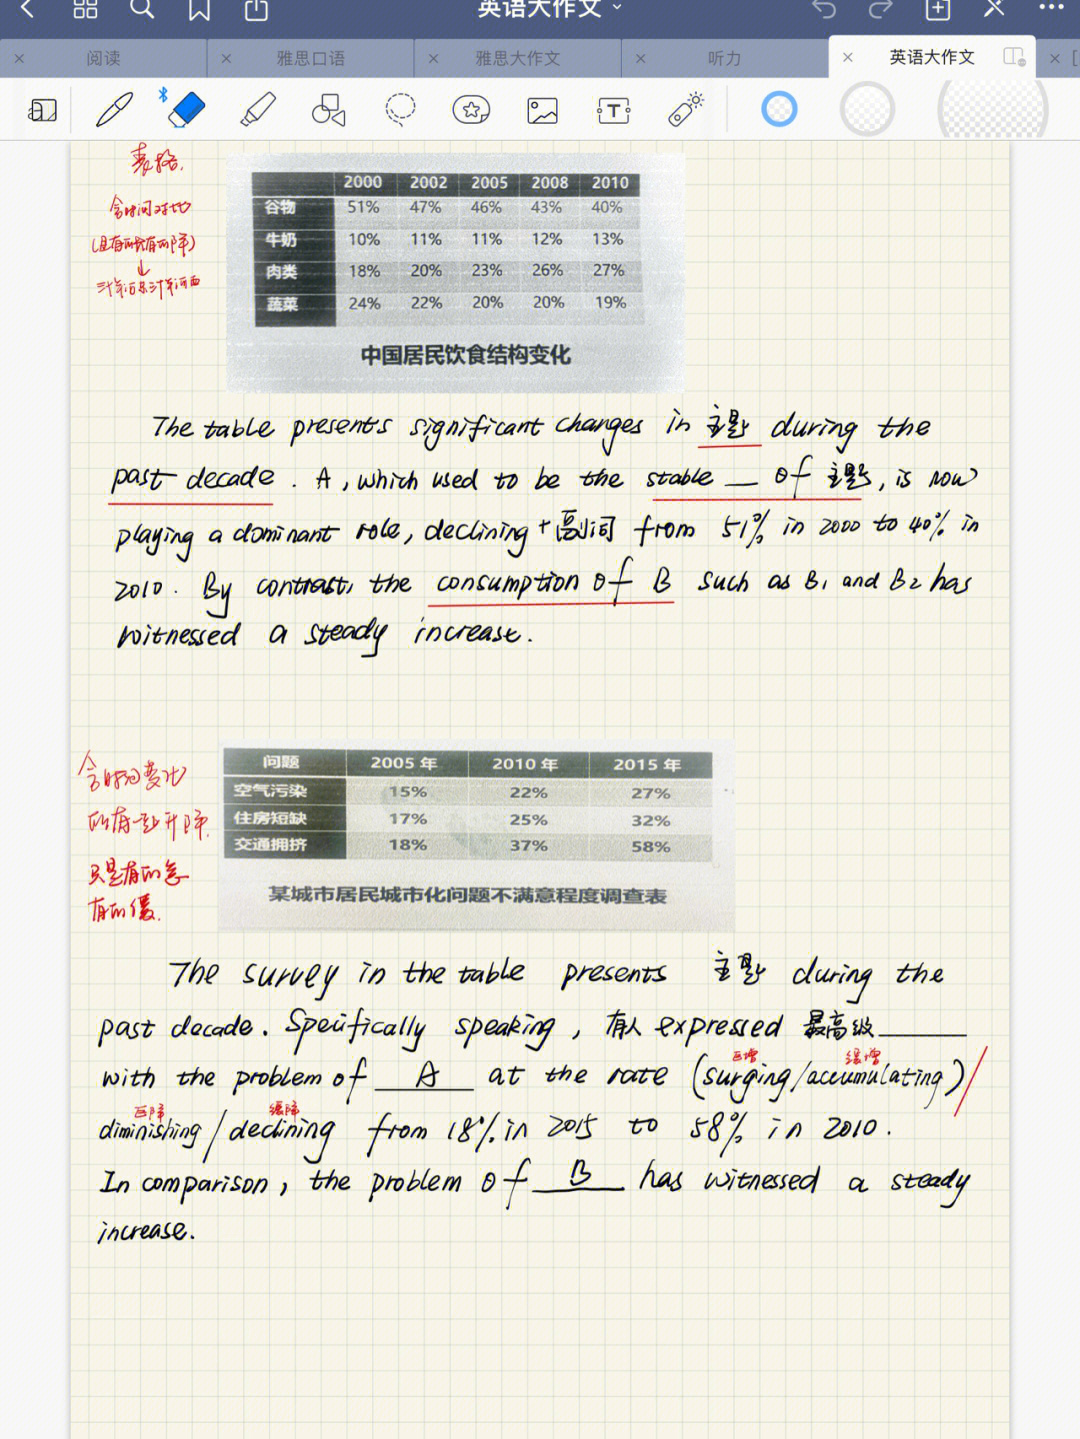 英语大作文
阅读
雅思口语
雅思大作文
听力
英语大作文
表格.
含时间对比
(且有的升有的降)
2000 2002 2005 2008 2010
谷物 51% 47% 46% 43% 40%
牛奶 10% 11% 11% 12% 13%
肉类 18% 20% 23% 26% 27%
蔬菜 24% 22% 20% 20% 19%
中国居民饮食结构变化
The table presents significant changes in 主题 during the
past decade. A, which used to be the stable __ of 主题, is now
playing a dominant role, declining + 副词 from 51% in 2000 to 40% in
2010. By contrast, the consumption of B such as B1 and B2 has
witnessed a steady increase.
含时间变化
所有一起升降.
只是有的急
有的缓.
问题 2005年 2010年 2015年
空气污染 15% 22% 27%
住房短缺 17% 25% 32%
交通拥挤 18% 37% 58%
某城市居民城市化问题不满意程度调查表
The survey in the table presents 主题 during the
past decade. Specifically speaking, 有人 expressed 最高级______
with the problem of __A__ at the rate (surging/accumulating)/
急增 缓增
急降 缓降
diminishing/declining from 18% in 2015 to 58% in 2010.
In comparison, the problem of __B__ has witnessed a steady
increase.